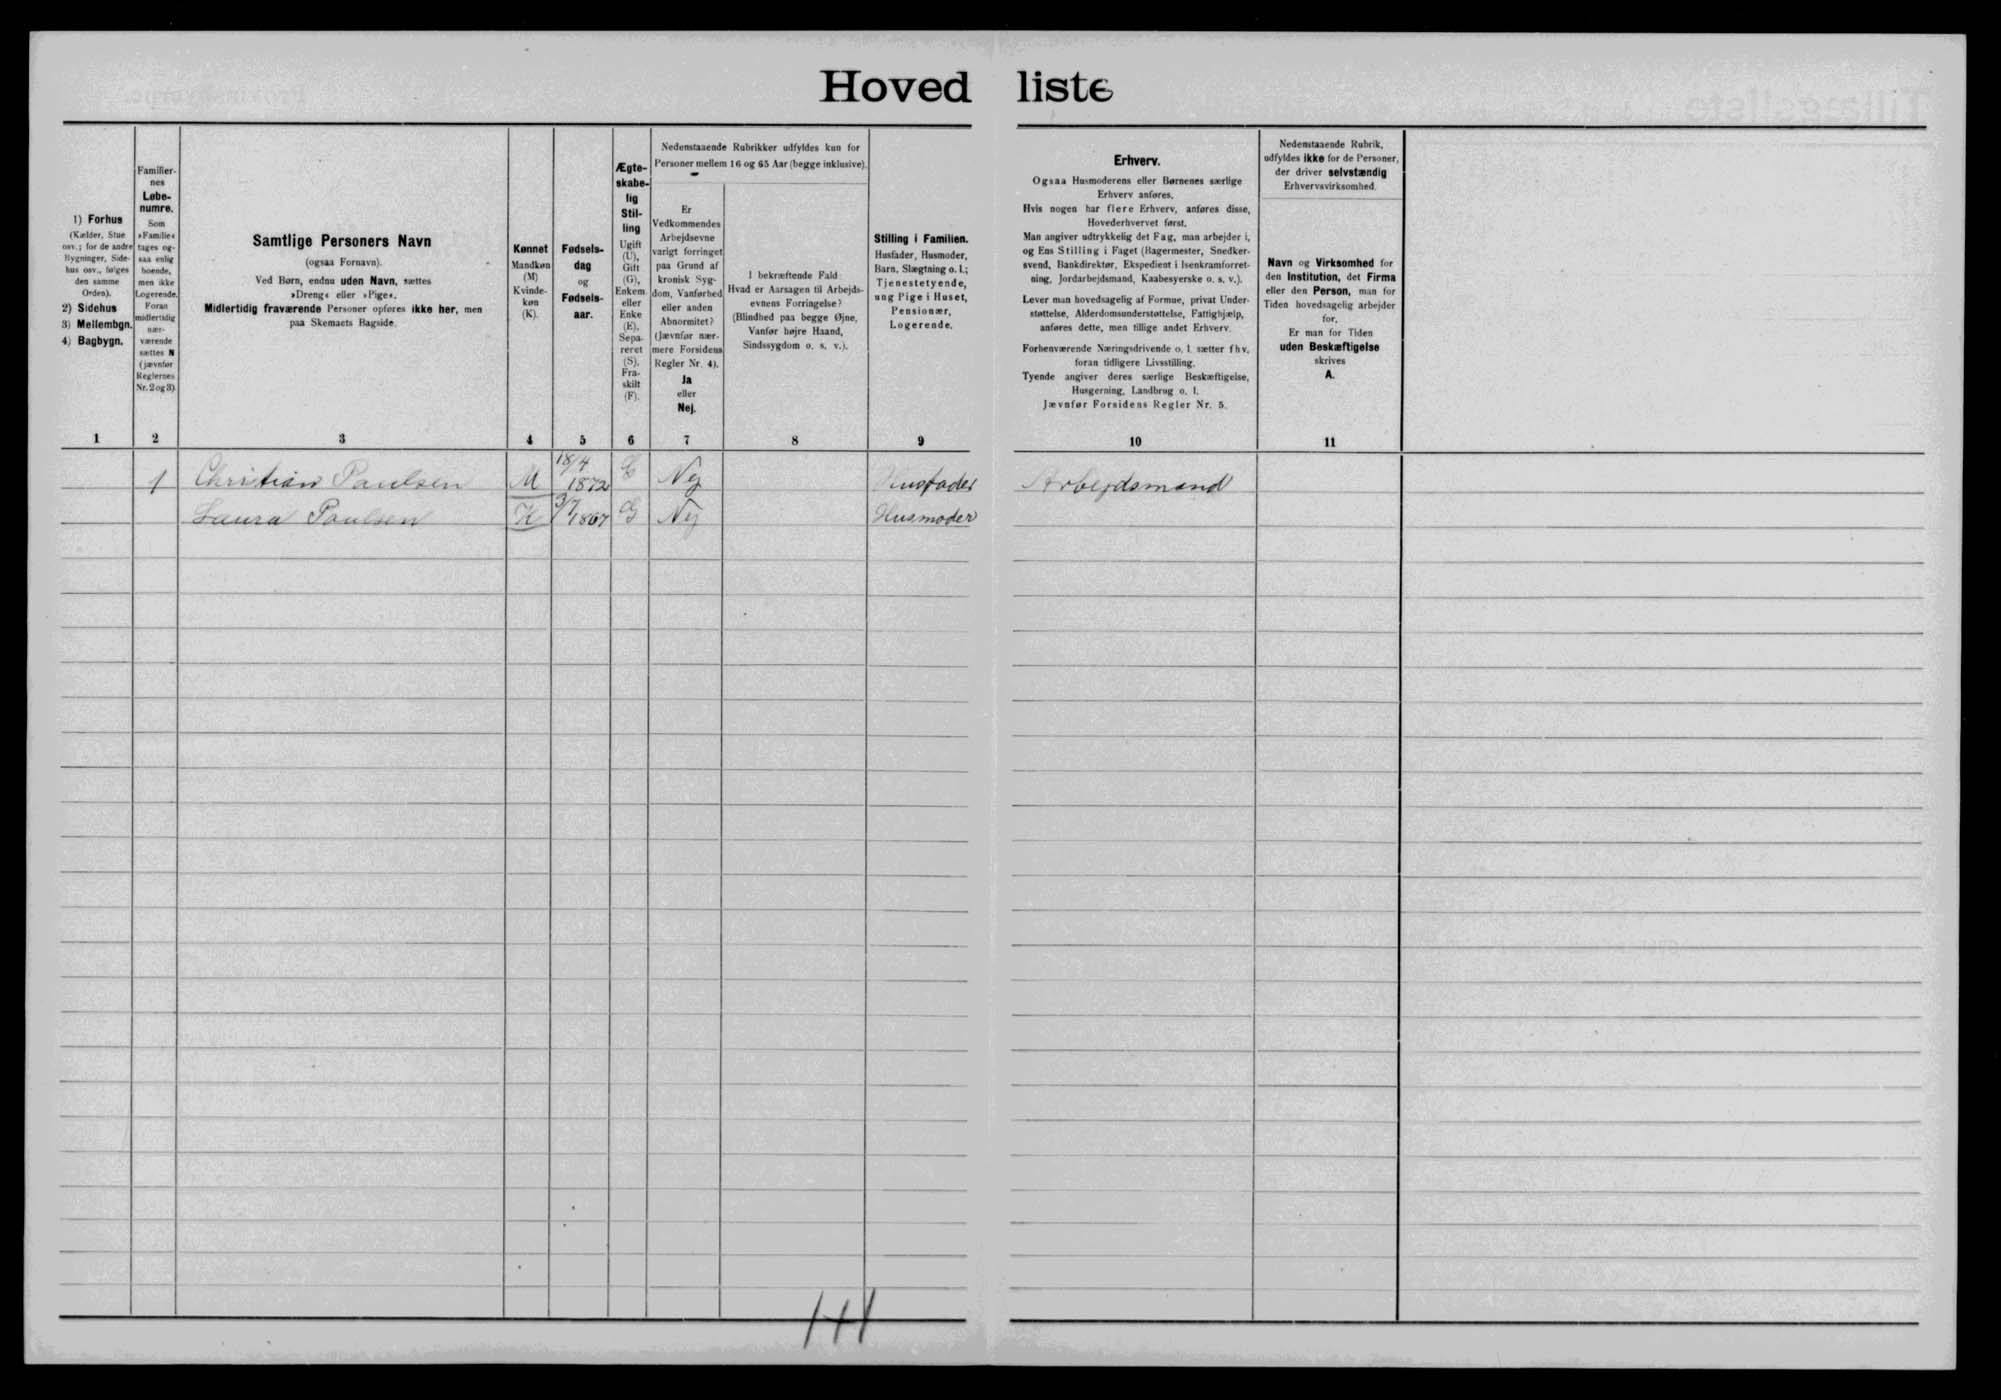 Hovedliste
1) Forhus
(Kælder, Stue
osv.; for de andre
Bygninger, Side-
hus osv., følges
den samme
Orden).
2) Sidehus
3) Mellembgn.
4) Bagbygn.
Familier-
nes
Løbe-
numre.
Som
»Familie«
tages og-
saa enlig
boende,
men ikke
Logerende.
Foran
midlertidig
nær-
værende
sættes N
(jævnfør
Reglernes
Nr. 2 og 3).
Samtlige Personers Navn
(ogsaa Fornavn).
Ved Børn, endnu uden Navn, sættes
»Dreng« eller »Pige«.
Midlertidig fraværende Personer opføres ikke her, men
paa Skemaets Bagside.
Kønnet
Mandkøn
(M)
Kvinde-
køn
(K).
Fødsels-
dag
og
Fødsels-
aar.
Ægte-
skabe-
lig
Stil-
ling
Ugift
(U),
Gift
(G),
Enkem.
eller
Enke
(E),
Sepa-
reret
(S),
Fra-
skilt
(F).
Nedenstaaende Rubrikker udfyldes kun for
Personer mellem 16 og 65 Aar (begge inklusive).
Er
Vedkommendes
Arbejdsevne
varigt forringet
paa Grund af
kronisk Syg-
dom, Vanførhed
eller anden
Abnormitet?
(Jævnfør nær-
mere Forsidens
Regler Nr. 4).
Ja
eller
Nej.
I bekræftende Fald:
Hvad er Aarsagen til Arbejds-
evnens Forringelse?
(Blindhed paa begge Øjne,
Vanfør højre Haand,
Sindssygdom o. s. v.).
Stilling i Familien.
Husfader, Husmoder,
Barn, Slægtning o. l.;
Tjenestetyende,
ung Pige i Huset,
Pensionær,
Logerende.
Erhverv.
Ogsaa Husmoderens eller Børnenes særlige
Erhverv anføres.
Hvis nogen har flere Erhverv, anføres disse,
Hovederhvervet først.
Man angiver udtrykkelig det Fag, man arbejder i,
og Ens Stilling i Faget (Bagermester, Snedker-
svend, Bankdirektør, Ekspedient i Isenkramforret-
ning, Jordarbejdsmand, Kaabesyerske o. s. v.).
Lever man hovedsagelig af Formue, privat Under-
støttelse, Alderdomsunderstøttelse, Fattighjælp,
anføres dette, men tillige andet Erhverv.
Forhenværende Næringsdrivende o. l. sætter fhv.
foran tidligere Livsstilling.
Tyende angiver deres særlige Beskæftigelse,
Husgerning, Landbrug o. l.
Jævnfør Forsidens Regler Nr. 5.
Nedenstaaende Rubrik,
udfyldes ikke for de Personer,
der driver selvstændig
Erhvervsvirksomhed.
Navn og Virksomhed for
den Institution, det Firma
eller den Person, man for
Tiden hovedsagelig arbejder
for.
Er man for Tiden
uden Beskæftigelse
skrives
A.
1 2 3 4 5 6 7 8 9 10 11
1 Christian Paulsen M 18/4 1872 G Nej Husfader Arbejdsmand
Laura Paulsen K 3/7 1867 G Nej Husmoder
1+1